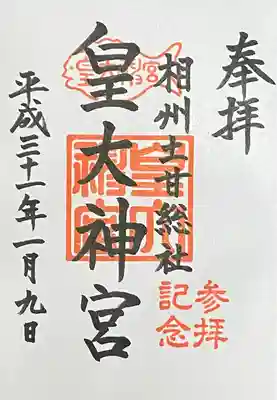 奉拝
相州土甘総社
参拝
記念
皇大神宮
平成三十一年一月九日